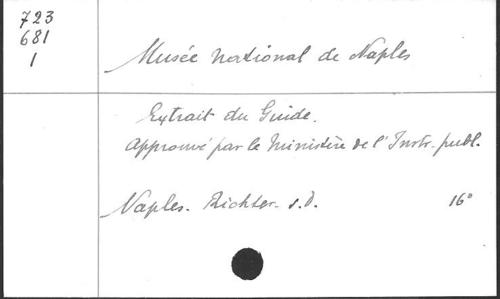 723
681
1
Musée national de Naples
Extrait du Guide.
Approuvé par le Ministère de l'Instr. publ.
Naples. Richter. s.d. 16°